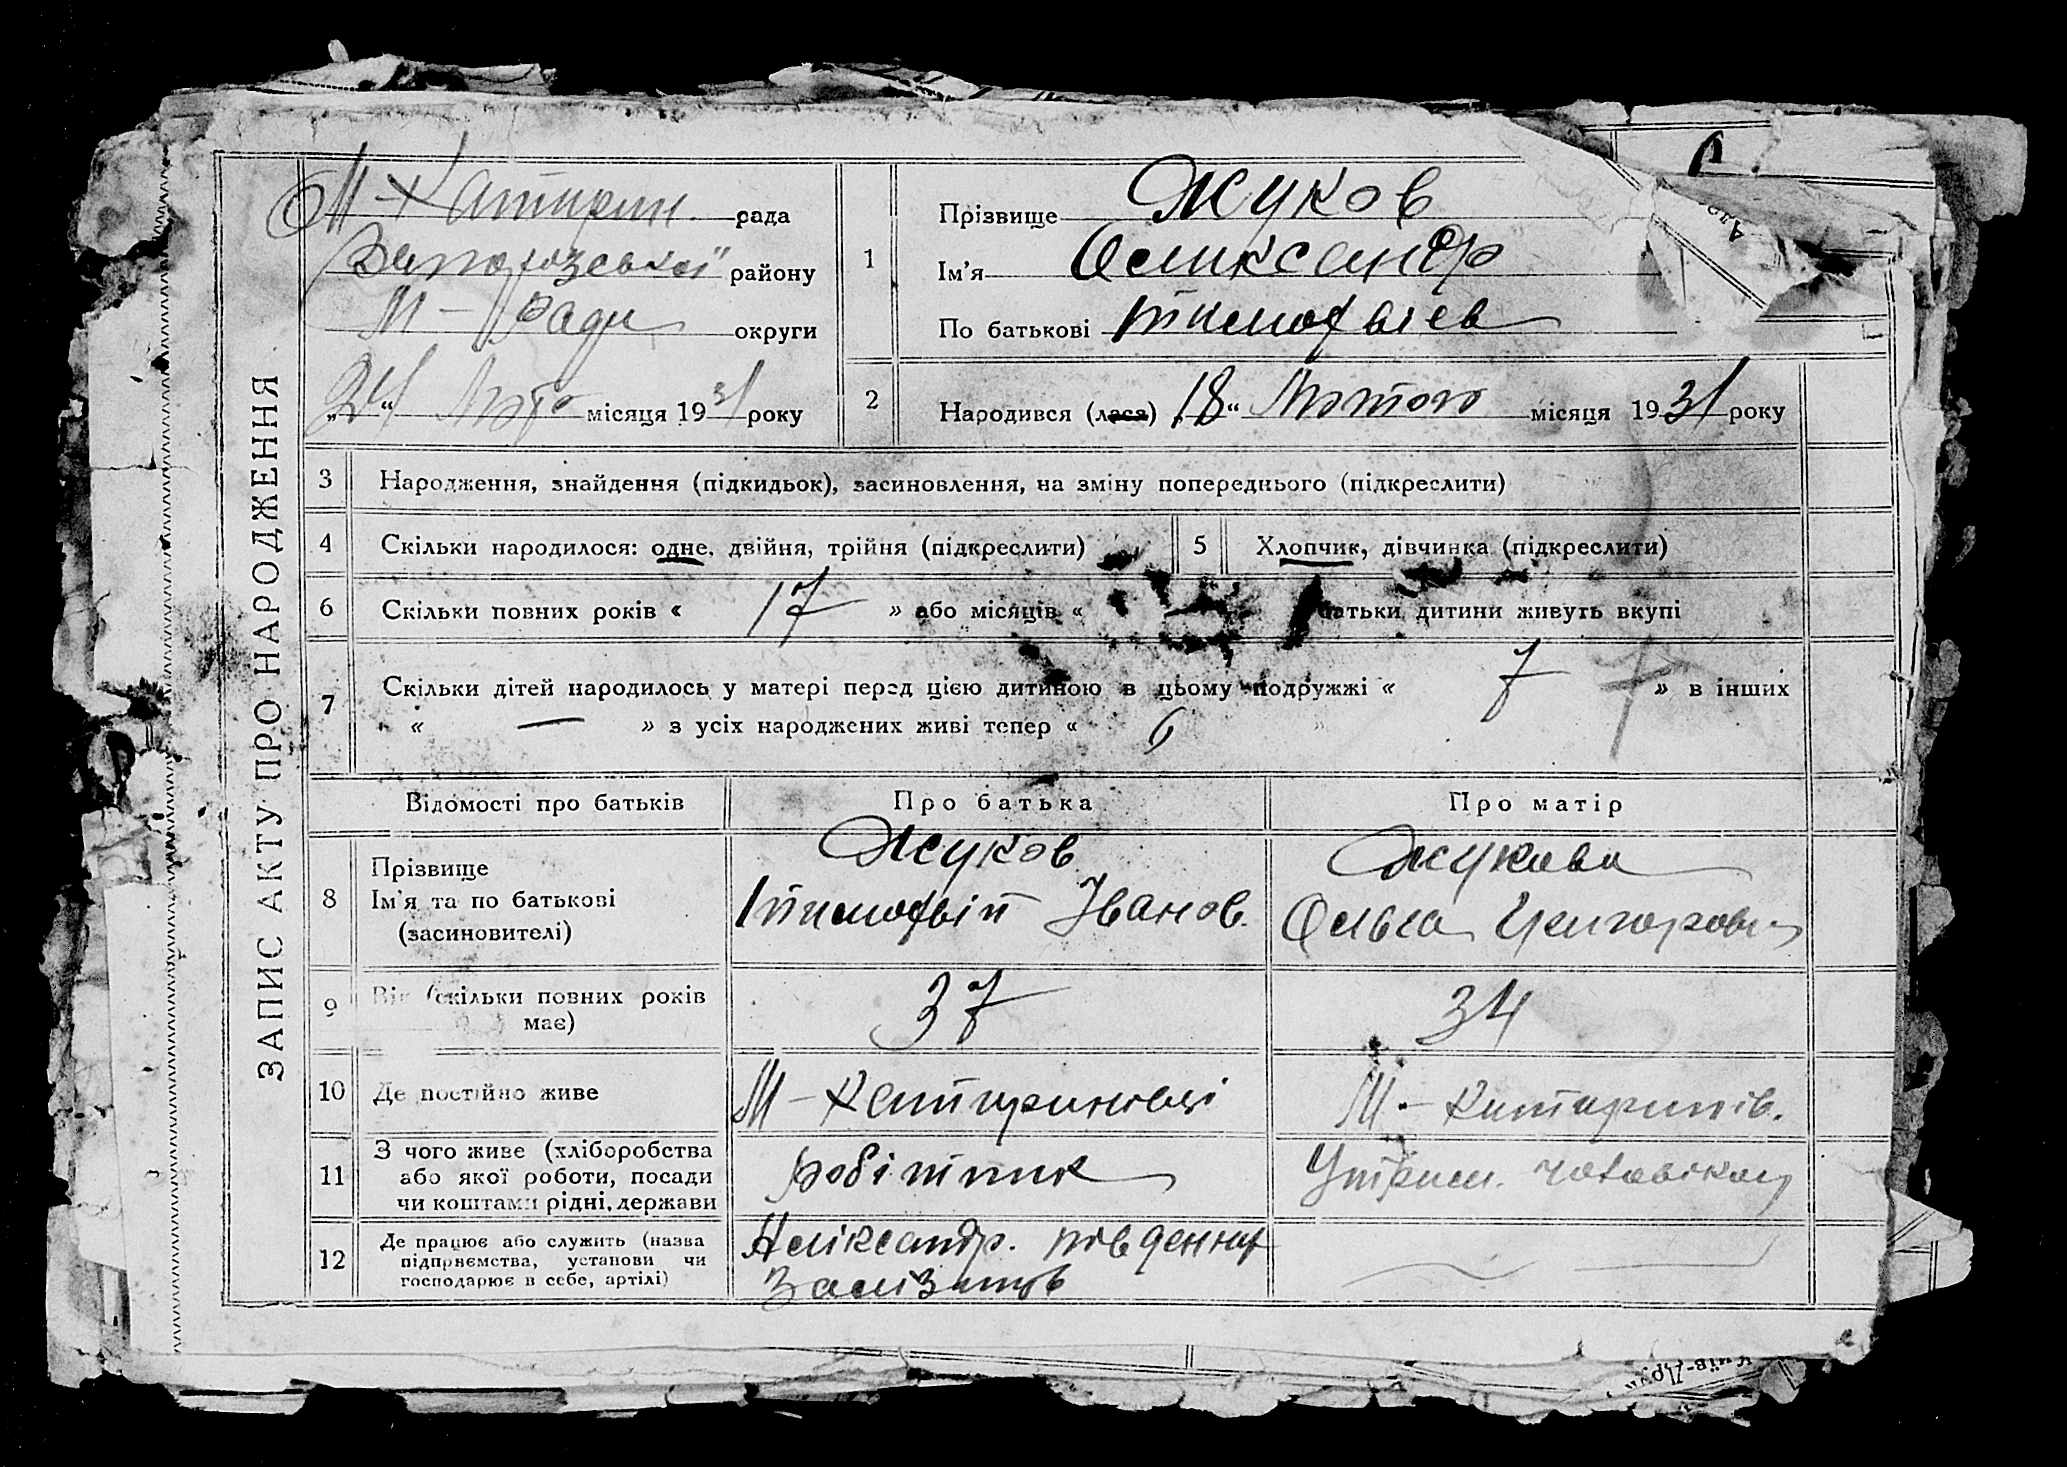 ЗАПИС АКТУ ПРО НАРОДЖЕННЯ
М-Катирин. рада
Запорозської району
М-Ради округи
„24“ Лют місяця 1931 року
1
Прізвище Жуков
Ім'я Олександр
По батькові Тимофвіев
2
Народився (лася) „18“ Лютого місяця 1931 року
3
Народження, знайдення (підкидьок), засиновлення, на зміну попереднього (підкреслити)
4
Скільки народилося: одне, двійня, трійня (підкреслити)
5
Хлопчик, дівчинка (підкреслити)
6
Скільки повних років « 17 » або місяців « батьки дитини живуть вкупі
7
Скільки дітей народилось у матері перед цією дитиною в цьому подружжі « 7 7 » в інших
« — » з усіх народжених живі тепер « 6 »
Відомості про батьків
Про батька
Про матір
8
Прізвище
Ім'я та по батькові
(засиновителі)
Жуков
Тимофвій Іванов.
Жукова
Ольга
9
Вік (скільки повних років
має)
37
34
10
Де постійно живе
М-Катиринівці
М.-Катиринів.
11
З чого живе (хліборобства
або якої роботи, посади
чи коштами рідні, держави
робітник
Утрим. чоловіком
12
Де працює або служить (назва
підприємства, установи чи
господарює в себе, артілі)
Алікеандр. південних
Залізниць
Київ-Друк